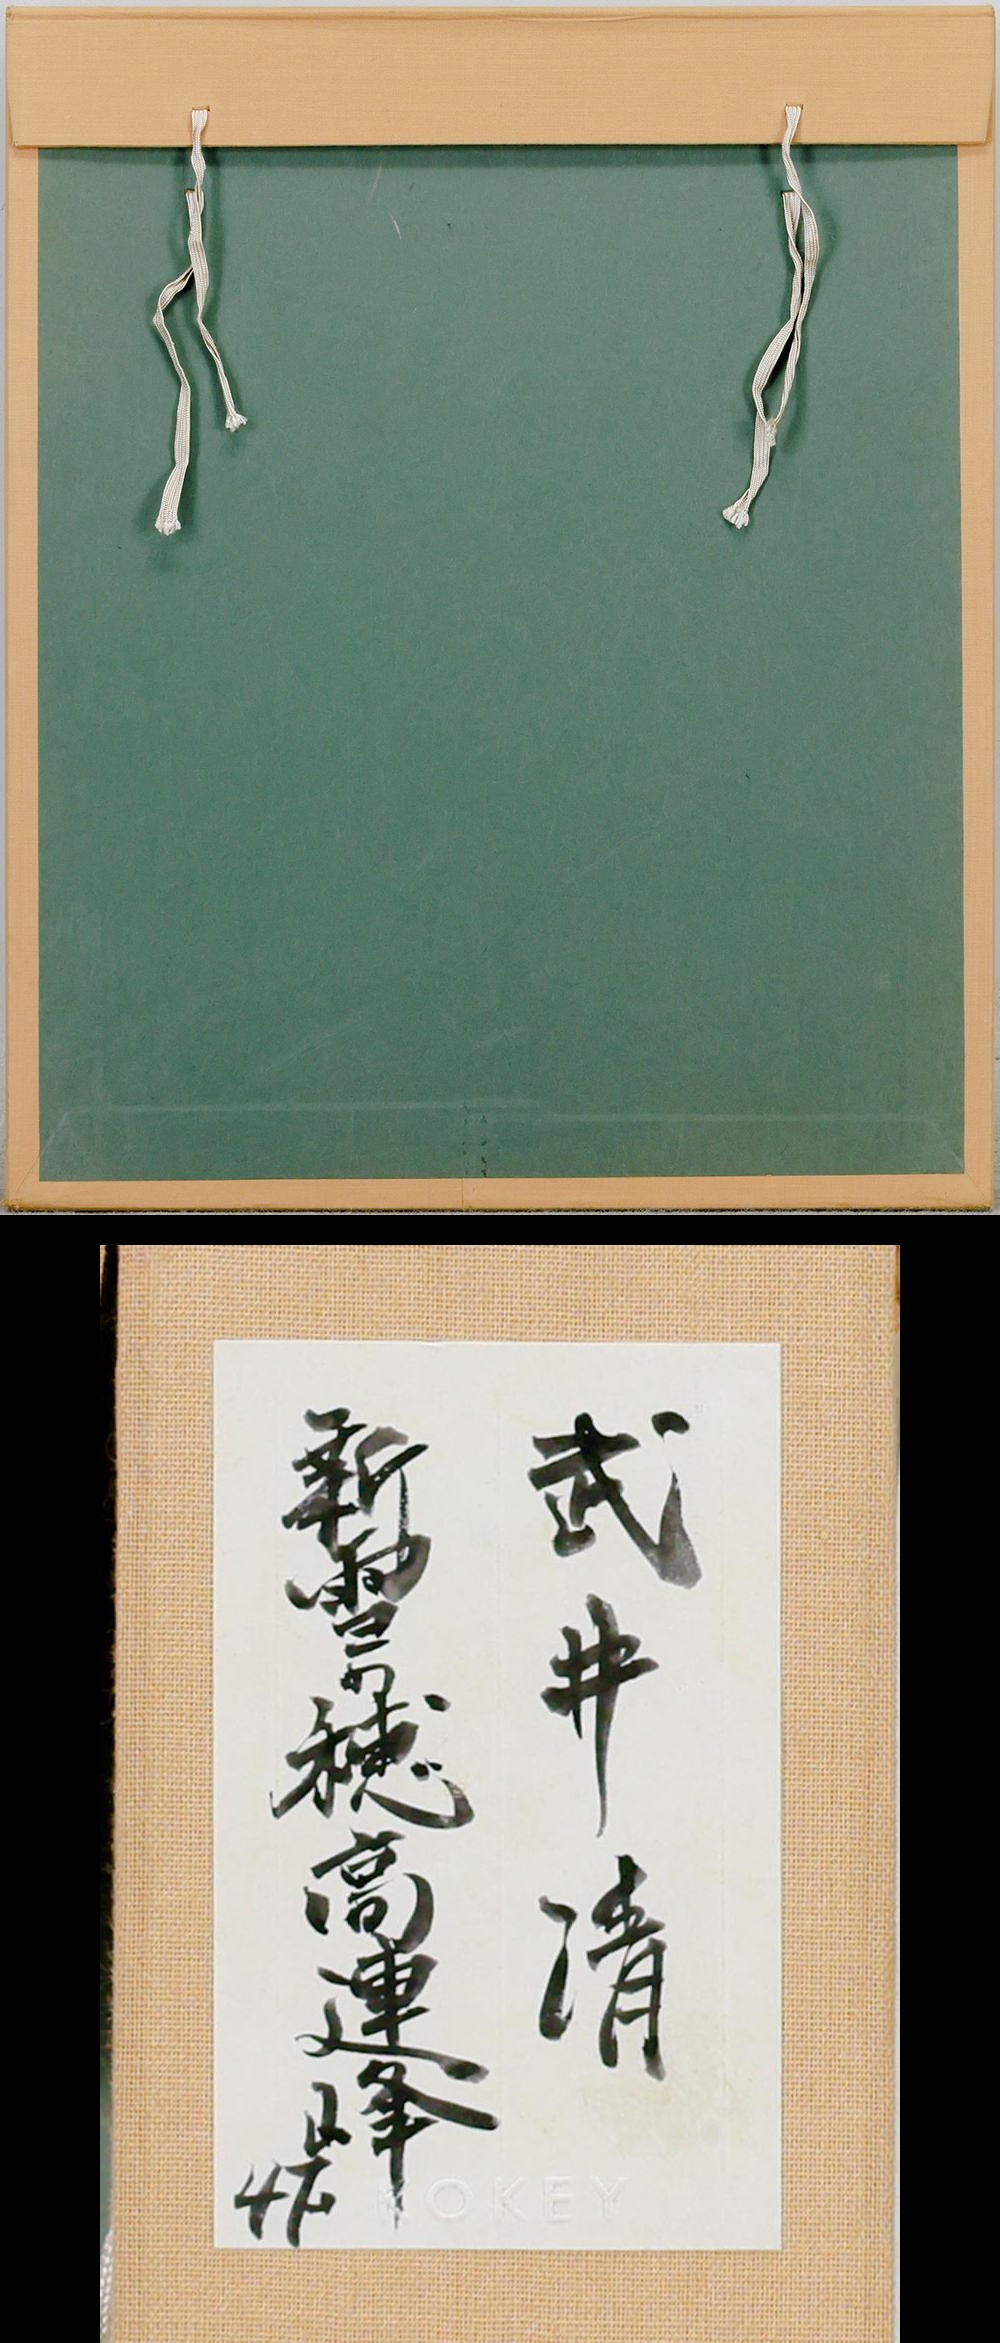 武井清
新雪の穂高連峰
KOKEY